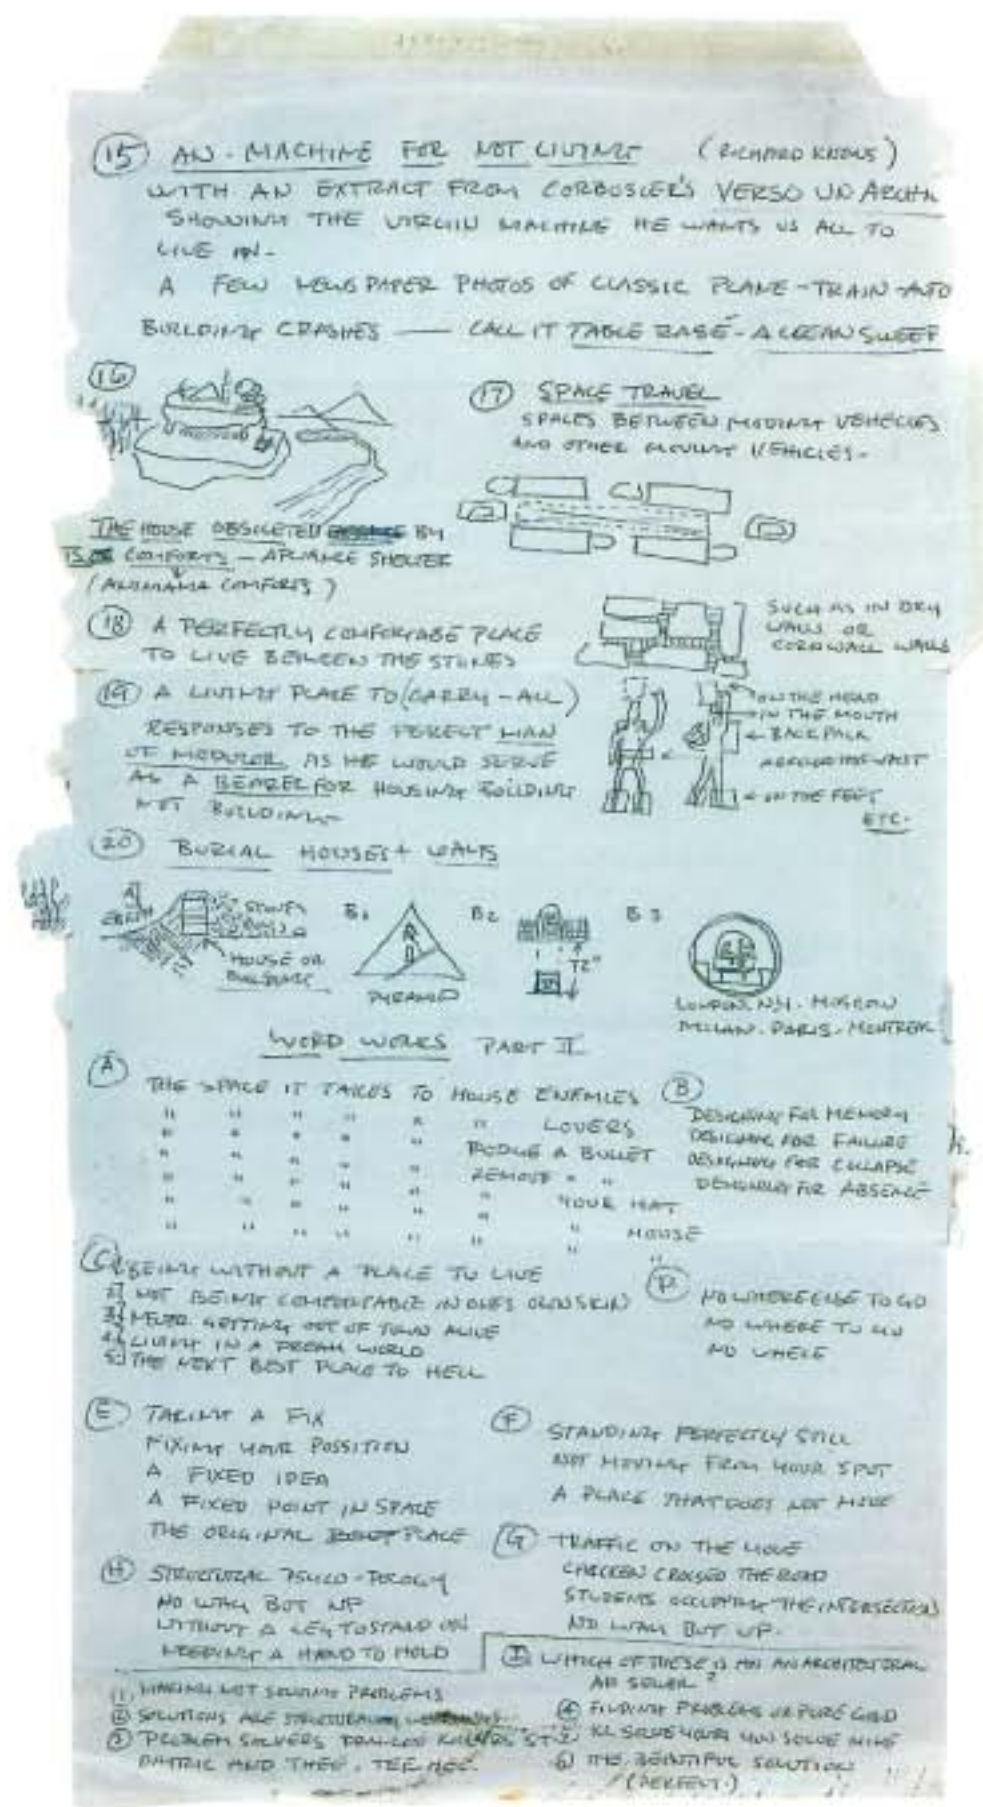 (15) AN. MACHINE FOR NOT LIVING (RICHARD KNOWS)
WITH AN EXTRACT FROM CORBUSIER'S VERSO UN ARCH.
SHOWING THE VIRGIN MACHINE HE WANTS US ALL TO
LIVE IN -
A FEW NEWSPAPER PHOTOS OF CLASSIC PLANE - TRAIN - AUTO
BUILDING CRASHES — CALL IT TABLE RASÉ - A CLEAN SWEEP
(16)
THE HOUSE OBSOLETED BY
COMFORTS - APLIANCE SHELTER
( COMFORTS)
(17) SPACE TRAVEL
SPACES BETWEEN MOVING VEHICLES
AND OTHER MOVING VEHICLES -
(18) A PERFECTLY COMFORTABE PLACE
TO LIVE BETWEEN THE STONES
SUCH AS IN DRY
WALLS OR
CORNWALL WALLS
(19) A LIVING PLACE TO (CARRY - ALL)
RESPONSES TO THE PERFECT MAN
OF MODULOR AS HE WOULD SERVE
AS A BEARER FOR HOUSING BUILDING
NOT BUILDING
ON THE HEAD
IN THE MOUTH
BACK PACK
ON THE FEET
ETC.
(20) BURIAL HOUSES + WALLS
A
EARTH
STONES
HOUSE OR
BUILDING
B1
PYRAMID
B2
B3
LONDON. N.Y. MOSCOW
MILAN. PARIS. MONTREAL
WORD WORKS PART II
(A) THE SPACE IT TAKES TO HOUSE ENEMIES
" " " " " " LOVERS
" " " " " DODGE A BULLET
" " " " " REMOVE " "
" " " " " " YOUR HAT
" " " " " " " HOUSE
(B)
DESIGNING FOR MEMORY
DESIGNING FOR FAILURE
DESIGNING FOR COLLAPSE
DESIGNING FOR ABSENCE
(C) 1] BEING WITHOUT A PLACE TO LIVE
2] NOT BEING COMFORTABLE IN ONES OWN SKIN
3] NEVER GETTING OUT OF TOWN ALIVE
4] LIVING IN A DREAM WORLD
5] THE NEXT BEST PLACE TO HELL
(D) NO WHERE ELSE TO GO
NO WHERE TO GO
NO WHERE
(E) TAKING A FIX
FIXING YOUR POSSITION
A FIXED IDEA
A FIXED POINT IN SPACE
THE ORIGINAL PLACE
(F) STANDING PERFECTLY STILL
NOT MOVING FROM YOUR SPOT
A PLACE THAT DOES NOT MOVE
(G) TRAFFIC ON THE MOVE
CHICKEN CROSSED THE ROAD
STUDENTS OCCUPYING THE INTERSECTION
NO WAY BUT UP.
(H) STRUCTURAL
NO WAY BUT UP
WITHOUT A LEG TO STAND ON
NEEDING A HAND TO HOLD
(I) WHICH OF THESE IS AN ARCHITECTURAL
(1) MAKING NOT SOLVING PROBLEMS
(2) SOLUTIONS ARE
(3) PROBLEM SOLVERS
AND THEE. TEE HEE.
(4) FINDING PROBLEMS
SOLVE YOURS YOU SOLVE MINE
(6) THE BEAUTIFUL SOLUTION
(PERFECT.)